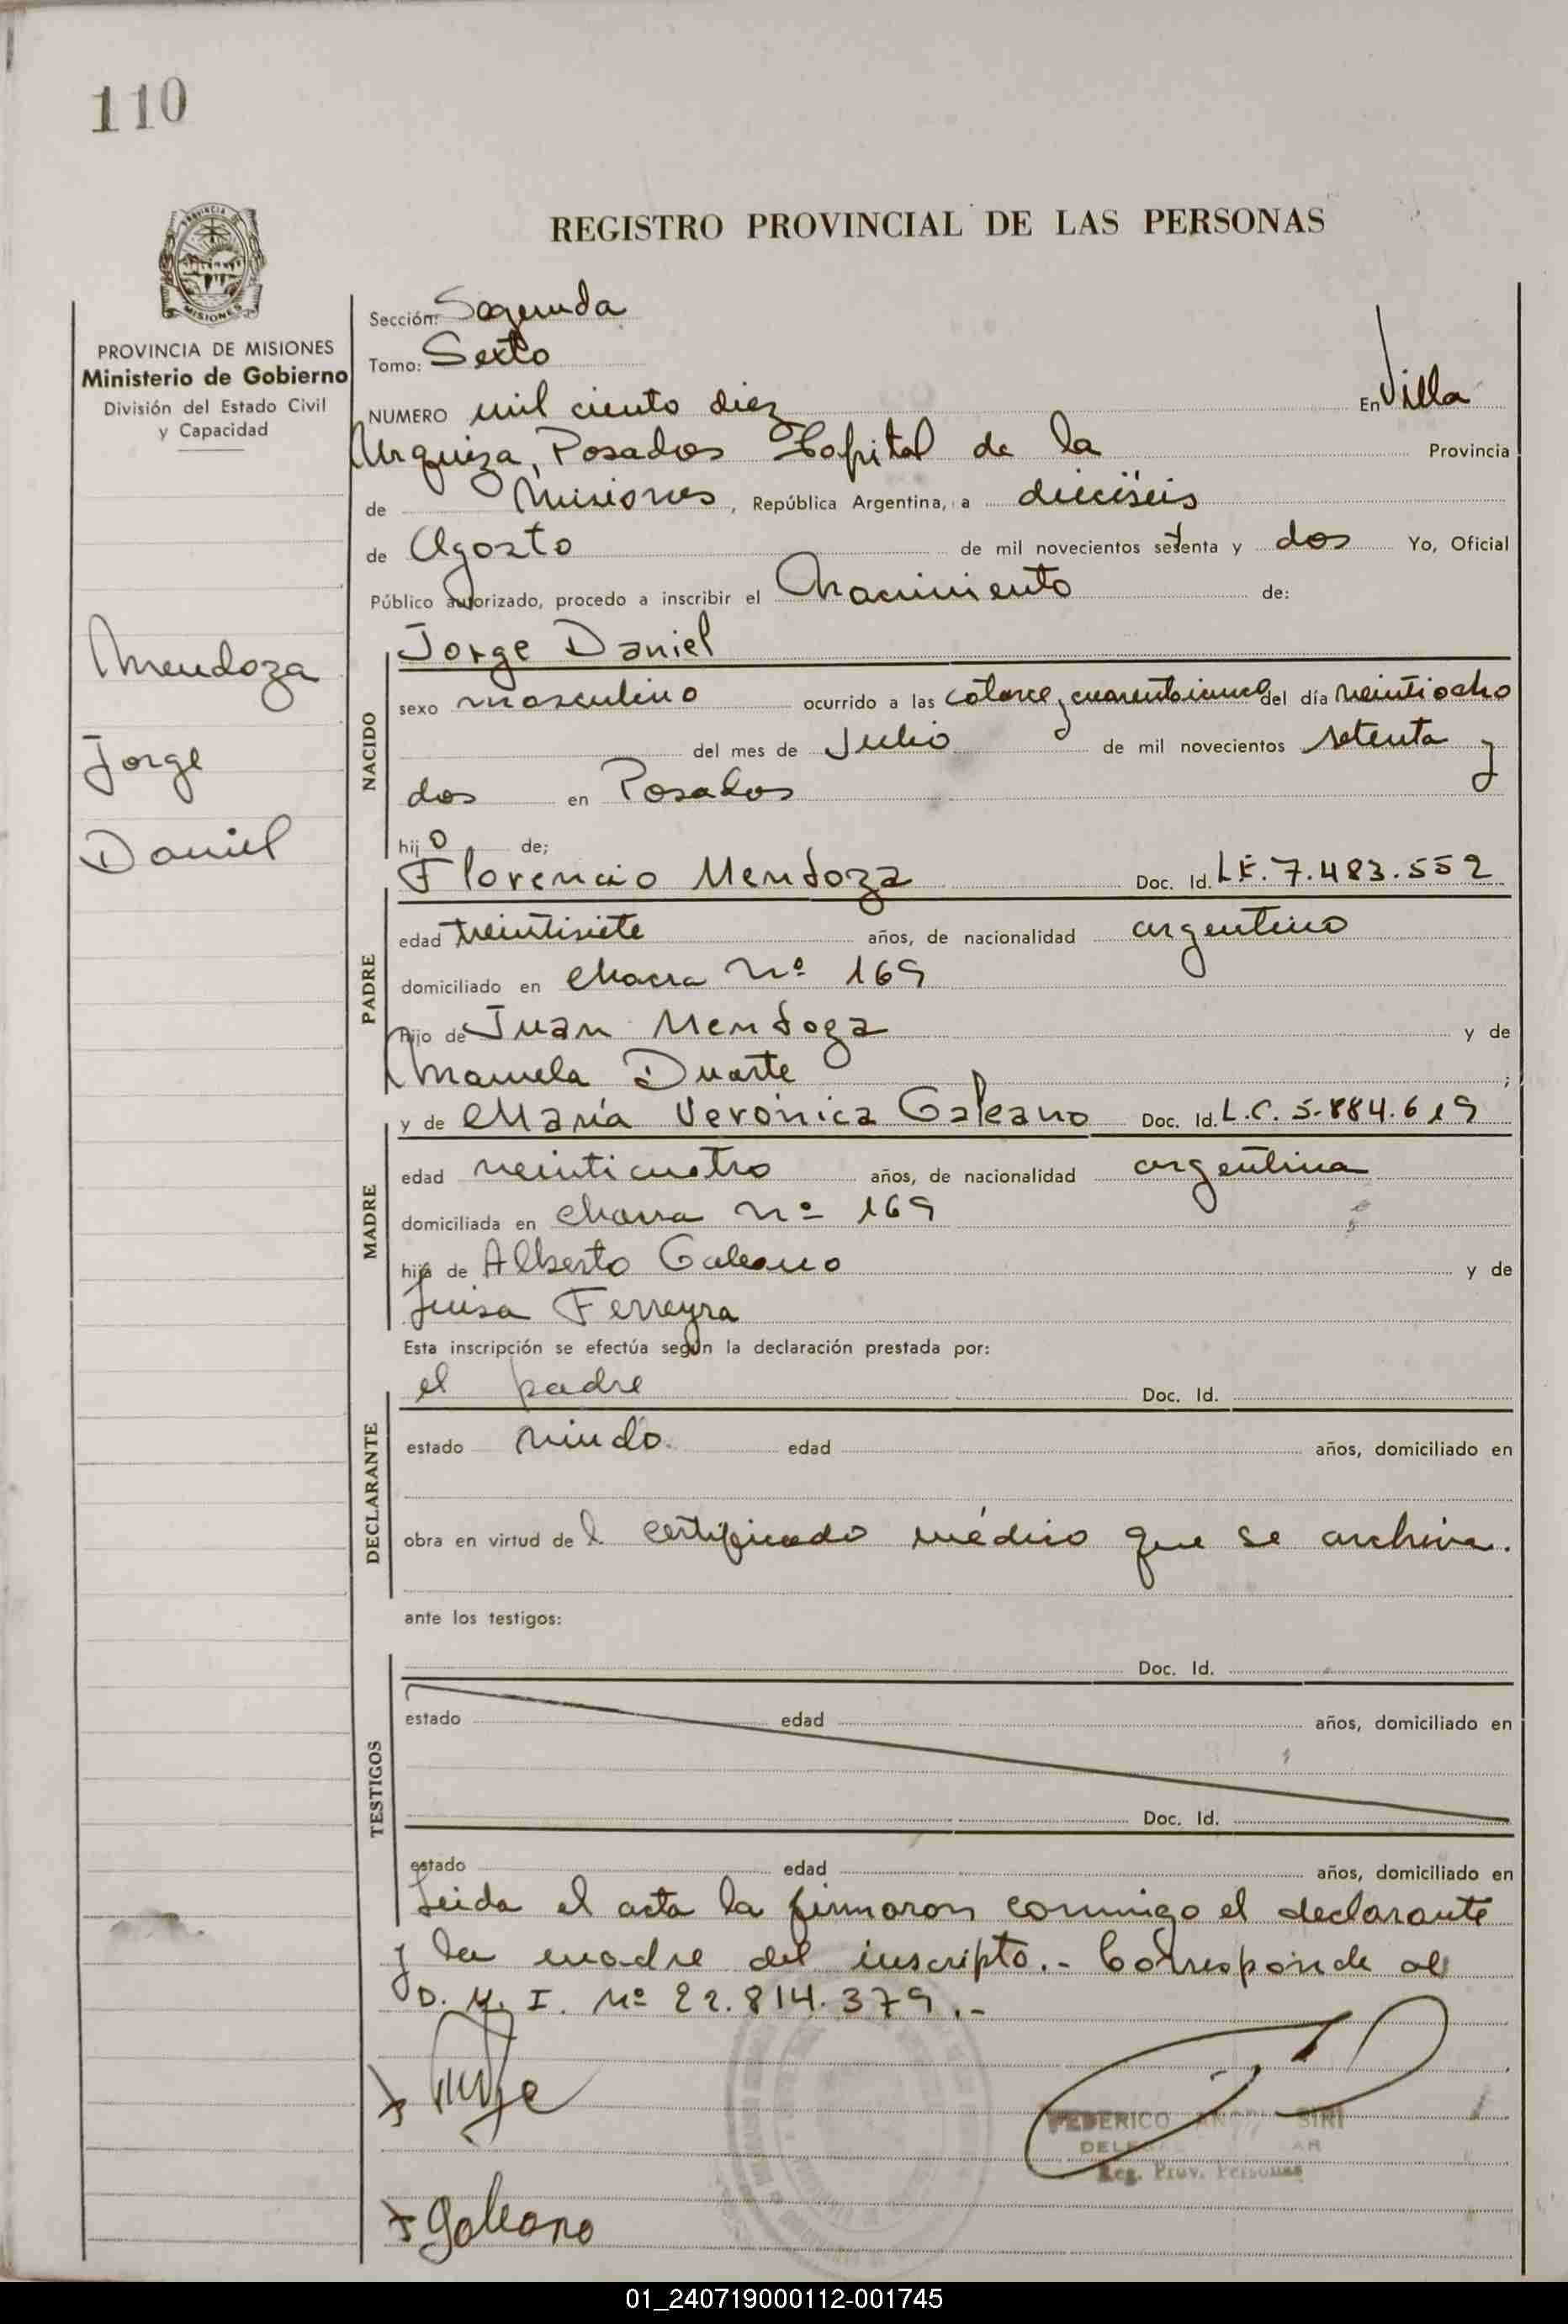 110
REGISTRO PROVINCIAL DE LAS PERSONAS
PROVINCIA DE MISIONES
MISIONES
PROVINCIA DE MISIONES
Ministerio de Gobierno
División del Estado Civil
y Capacidad
Mendoza
Jorge
Daniel
Sección: Segunda
Tomo: Sexto
NUMERO mil ciento diez En Villa
Urquiza, Posadas Hospital de la Provincia
de Misiones, República Argentina, a dieciseis
de Agosto de mil novecientos setenta y dos Yo, Oficial
Público autorizado, procedo a inscribir el Nacimiento de:
Jorge Daniel
NACIDO
sexo masculino ocurrido a las catorce y cuarenticinco del día veintiocho
del mes de Julio de mil novecientos setenta y
dos en Posadas
hijo de;
Florencio Mendoza Doc. Id. L.E. 7.483.552
PADRE
edad treintisiete años, de nacionalidad argentino
domiciliado en Chacra Nº 169
hijo de Juan Mendoza y de
Manuela Duarte ;
y de María Verónica Galeano Doc. Id. L.C. 5.884.619
MADRE
edad veinticuatro años, de nacionalidad argentina
domiciliada en Chacra Nº 169
hija de Alberto Galeano y de
Luisa Ferreyra
Esta inscripción se efectúa según la declaración prestada por:
el padre Doc. Id.
DECLARANTE
estado viudo edad años, domiciliado en
obra en virtud del certificado médico que se archiva.
ante los testigos:
Doc. Id.
TESTIGOS
estado edad años, domiciliado en
Doc. Id.
estado edad años, domiciliado en
Leida el acta la firmaron conmigo el declarante
y la madre del inscripto.- Corresponde al
D. N. I. Nº 22.814.379.-
FEDERICO SIRI
Reg. Prov. Personas
Galeano
01_240719000112-001745